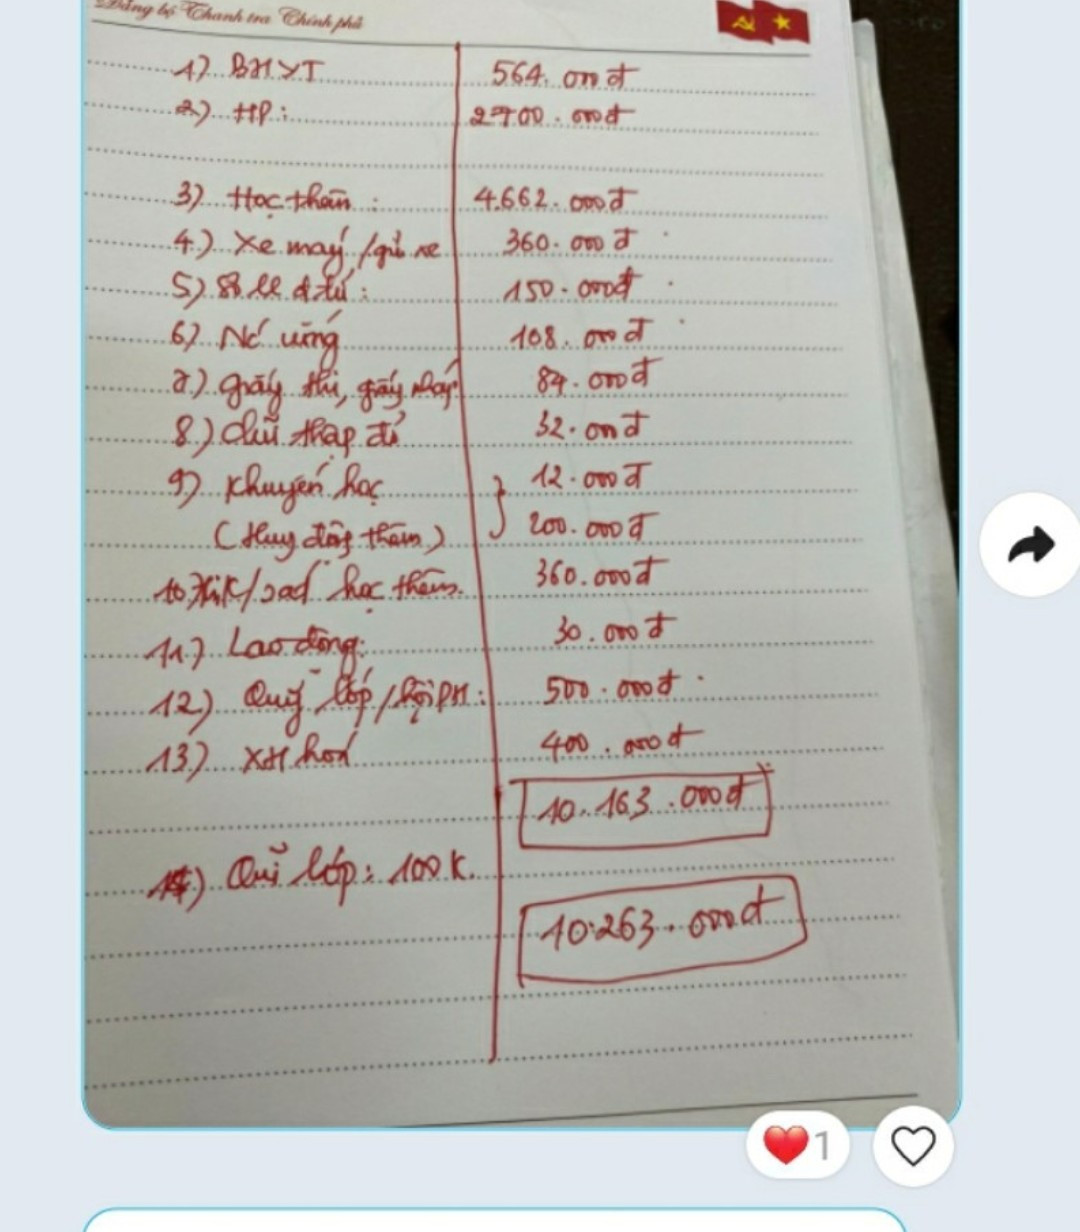 Đảng bộ Thanh tra Chính phủ
1) BHYT 564.000đ
2) HP: 2700.000đ
3) Học thêm: 4.662.000đ
4.) Xe máy/gửi xe 360.000đ
5) Sổ ll đ.tử: 150.000đ
6) Nc uống 108.000đ
7.) giấy thi, giấy nháp 84.000đ
8.) Chữ thập đỏ 32.000đ
9) Khuyến học 12.000đ
(Huy động thêm) } 200.000đ
10. học thêm. 360.000đ
11.) Lao động: 30.000đ
12) Quỹ lớp/hội PH: 500.000đ
13) XH hoá 400.000đ
10.163.000đ
14) Quĩ lớp: 100K.
10.263.000đ
1